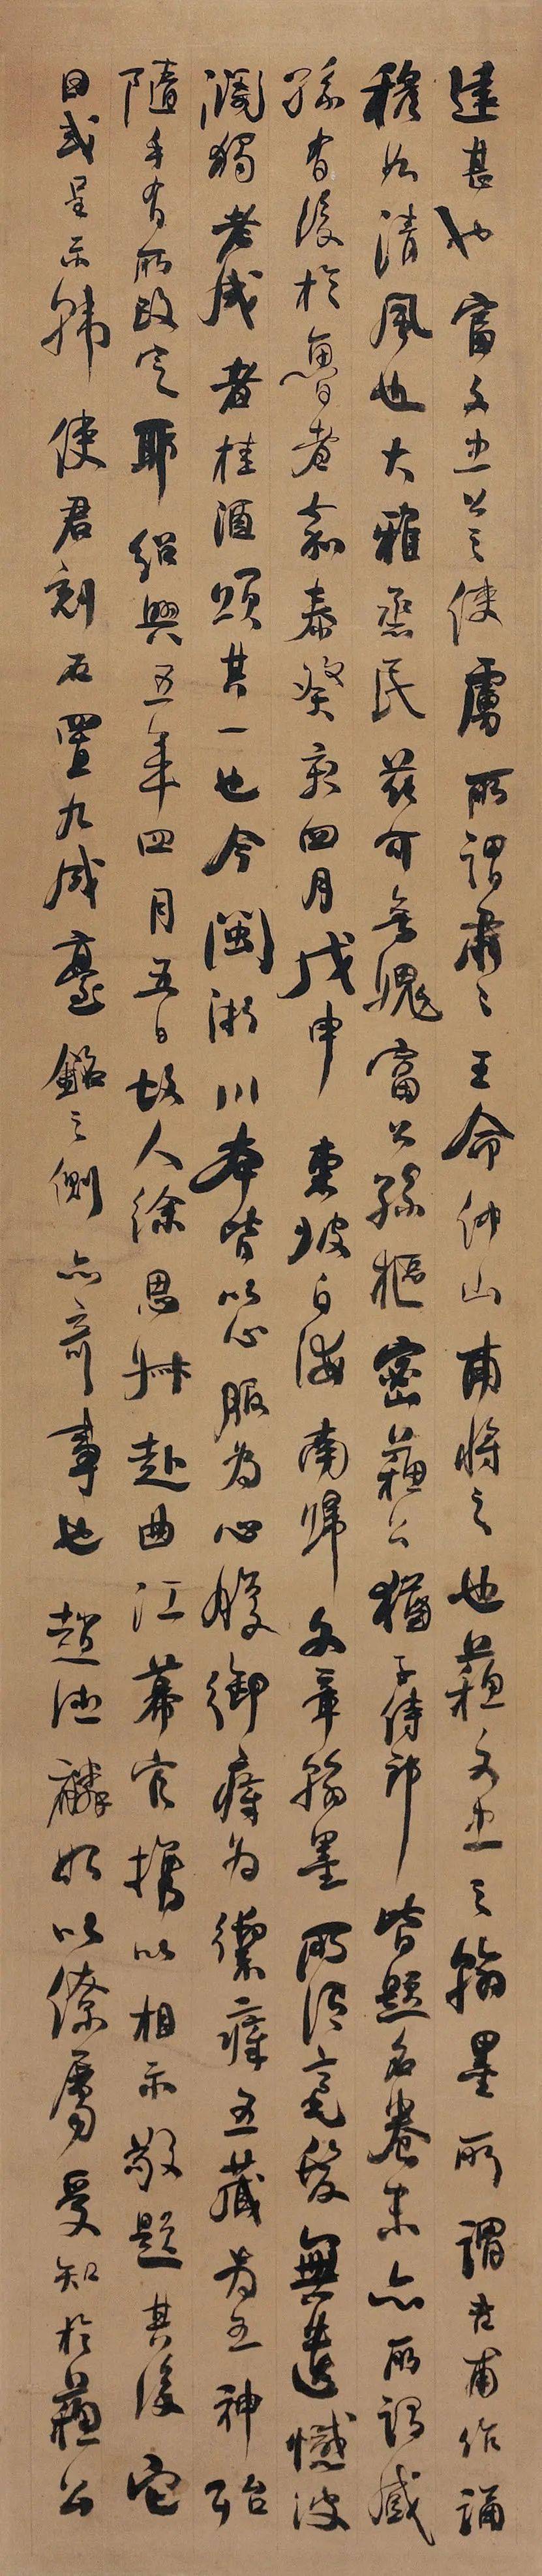 遠甚也富文忠公之使虜所謂肅之王命仲山甫將之也蘇文忠之翰墨所謂吉甫作誦
穆如清風也大雅烝民茲可無愧富公孫樞密蘇公猶子侍郎皆題名卷末亦所謂臧
孫有後於魯者嘉泰癸亥四月戊申東坡自海南歸文章翰墨所得毫髮無遺憾波
瀾獨老成者桂酒頌其一也今閩浙川本皆以心服為心腹御瘴為禦瘴五藏為五神殆
隨手有所改定耶紹興五年四月五日故人徐思叔赴曲江幕官攜以相示敬題其後它
日或呈示韓使君刻石置九成臺銘之側亦奇事也趙德麟如以僚屬受知於蘇公